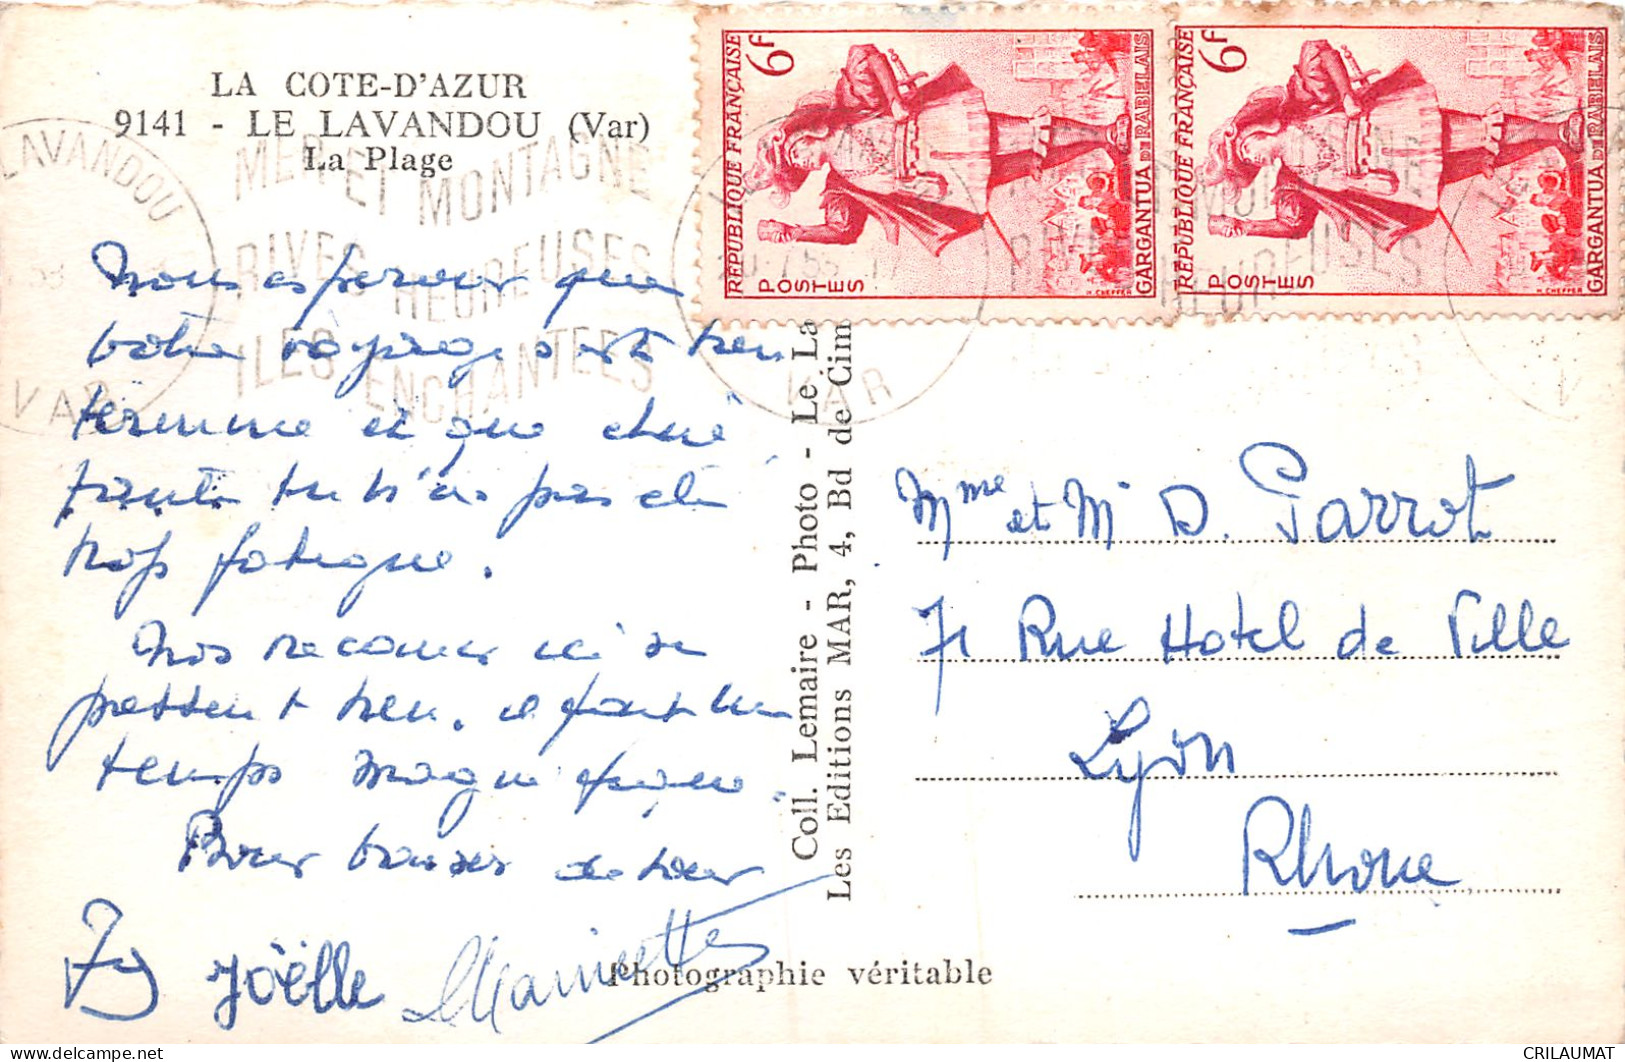 LA COTE-D'AZUR
9141 - LE LAVANDOU (Var)
La Plage
LAVANDOU
VAR
MER ET MONTAGNE
RIVES HEUREUSES
ILES ENCHANTEES
REPUBLIQUE FRANÇAISE
6F
POSTES
GARGANTUA DE RABELAIS
H. CHEFFER
REPUBLIQUE FRANÇAISE
6F
POSTES
GARGANTUA DE RABELAIS
H. CHEFFER
VAR
Nous esperons que
votre voyage s'est bien
terminé et que chère
tante tu n'as pas été
trop fatiguée.
Nos vacances ici se
passent bien. il fait un
temps magnifique.
Bons baisers de tous
Joëlle Mainette
Coll. Lemaire - Photo - Le La
Les Editions MAR, 4, Bd de Cim
Photographie véritable
Mme et Mr D. Parrot
71 Rue Hotel de Ville
Lyon
Rhone
CRILAUMAT